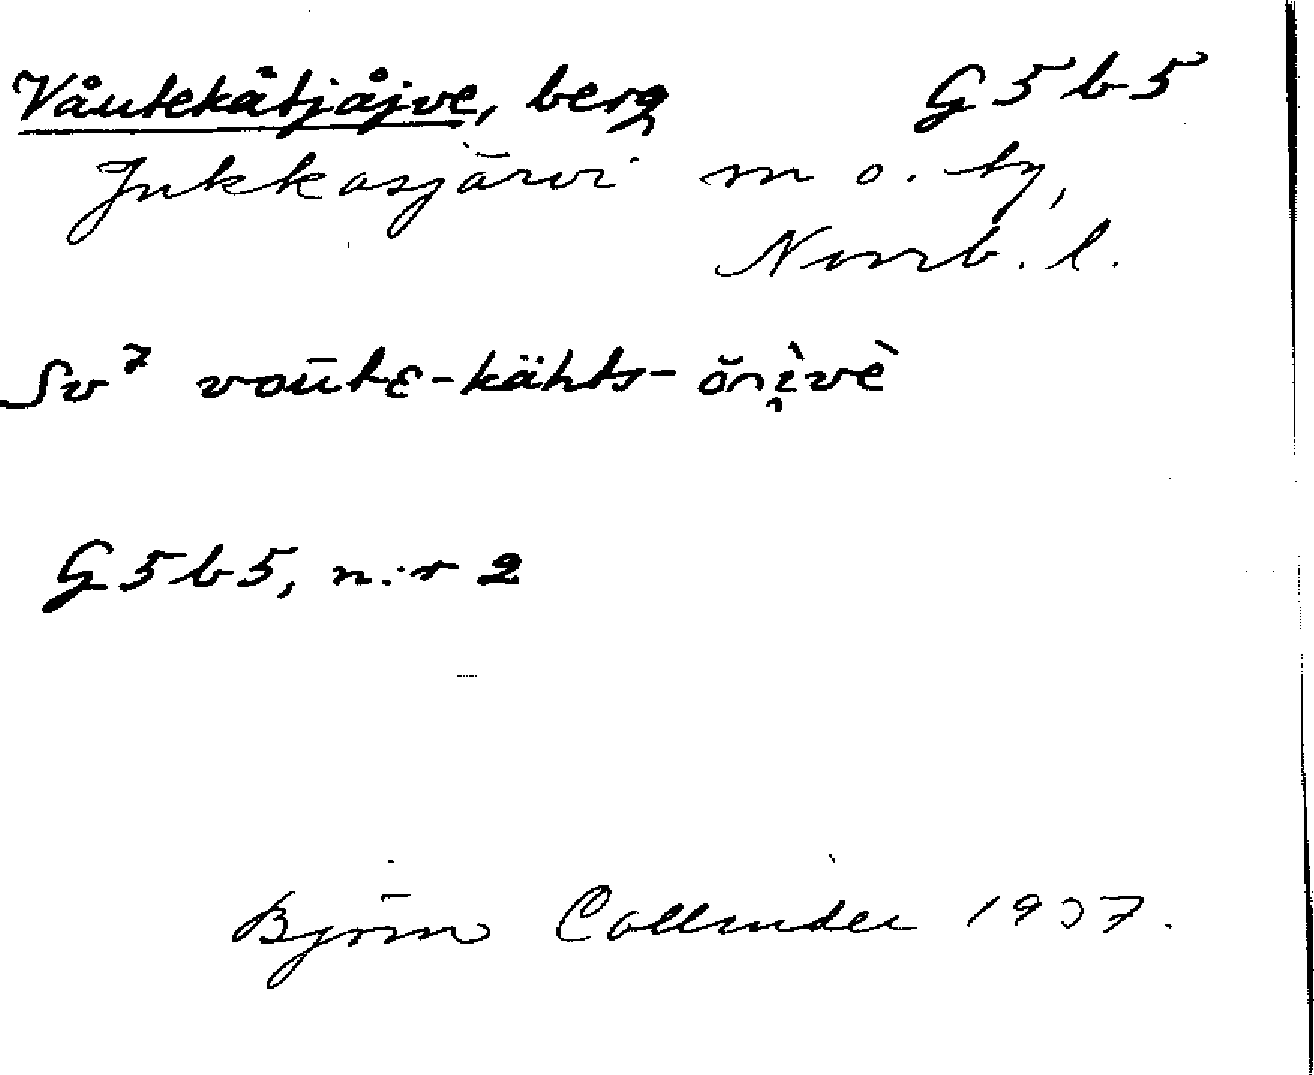 Våutekåtjåjve, berg G5b5
Jukkasjärvi m o. ty,
Norrb. l.
Sv⁷ voūtɛ-kähts-
G5b5, n:r 2
Björn Collinder 1937.